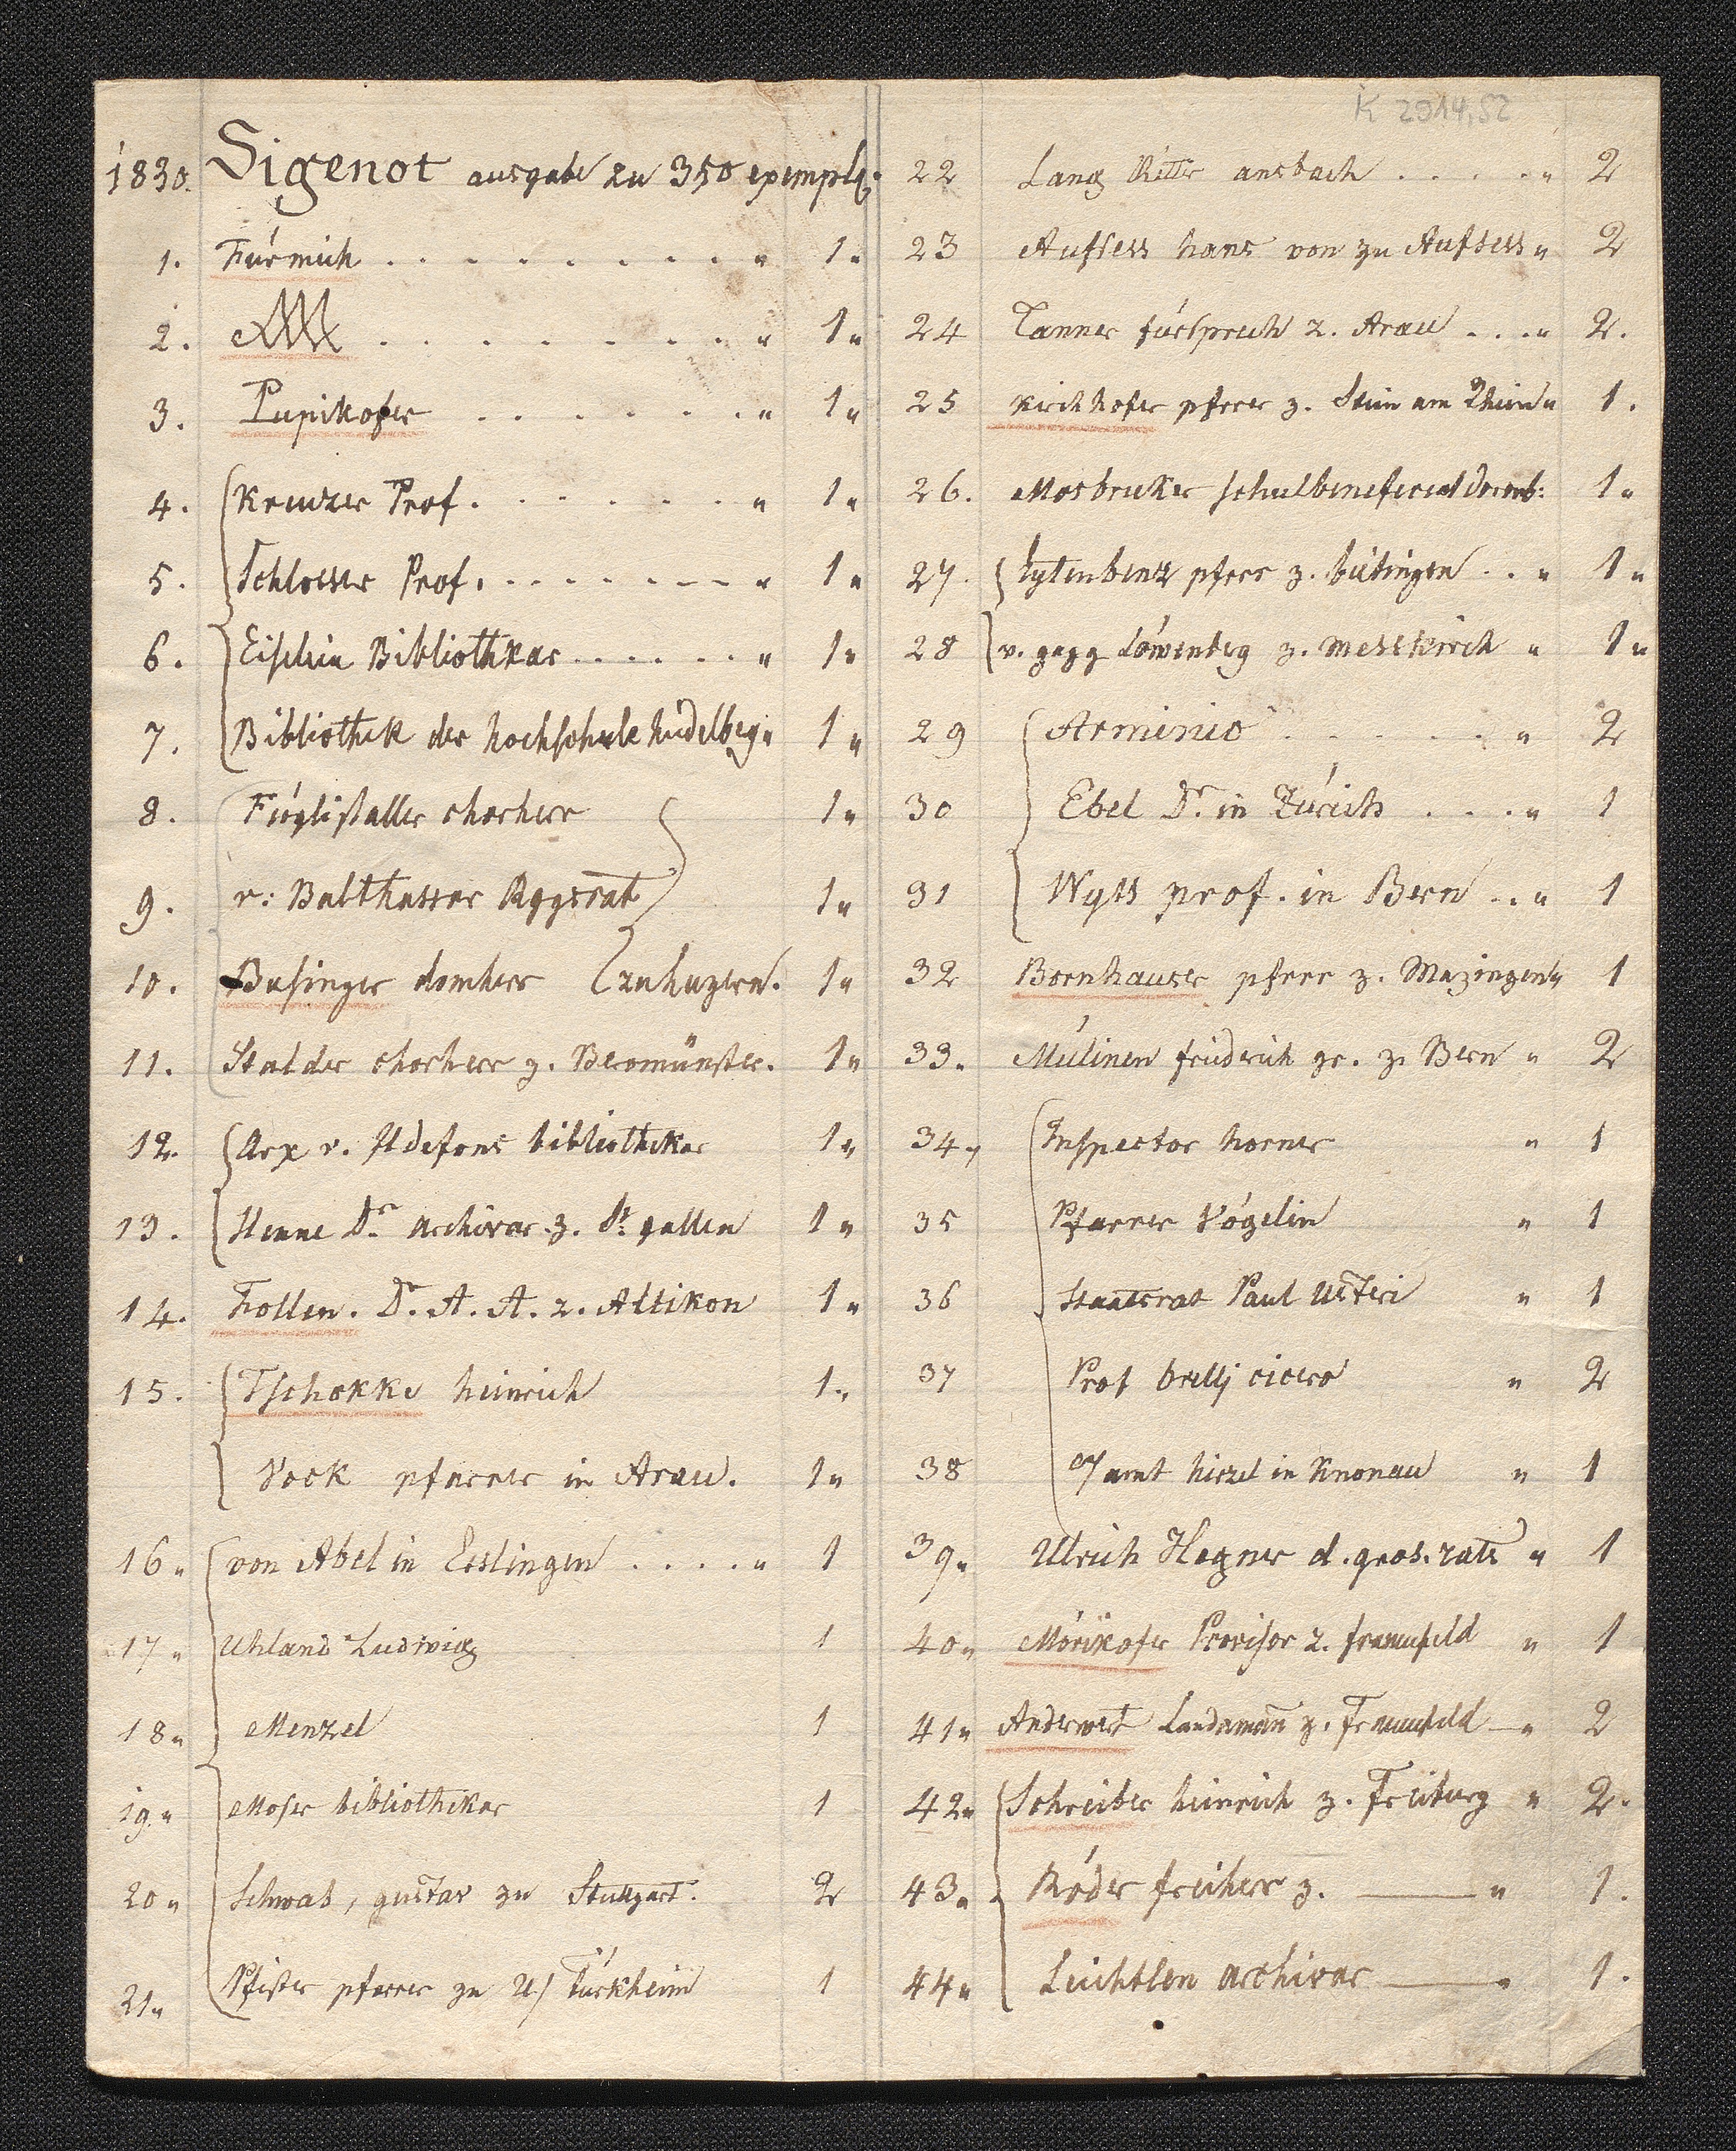 K 2914,52
1830. Sigenot ausgabe zu 350 exempl.
1. Fúr mich . . . . . . . . . . " 1"
2. . . . . . . . . . " 1"
3. Pupikofer . . . . . . " 1"
4. Kreuzer Prof. . . . . . . " 1"
5. Schlosser Prof. . . . . . . . " 1"
6. Eiselein Bibliothkar . . . . . . " 1"
7. Bibliothek der hochschule heidelbeg" 1"
8. Fúglistaller chorherr 1"
9. v: Balthassar Rggsrat 1"
10. Businger domherr zu luzern. 1"
11. Stalder chorherr z. Beromünster. 1"
12. Arx v. Ildefons bibliothekar 1"
13. Henne Dr. archivar z. St. gallen 1"
14. Follen. Dr. A. A. z. Altikon 1"
15. Tschokke heinrich 1"
Vock pfarrer in Arau. 1"
16" von Abel in Esslingen . . . . " 1
17" Uhland Ludwig 1
18" Menzel 1
19." Moser bibliothekar 1
20" Schwab, gustav zu Stutgart. 2
21" Pfister pfarrer zu U/ Túrkheim 1
22 Lang Ritter ansbach . . . . . " 2
23 Aufsess hans von zu Aufsess" 2
24 Tanner fúrsprech z. Arau . . . " 2.
25 Kirchhofer pfrrer z. Stein am Rhein" 1.
26. Mosbruker schulbeneficiat 1"
27. pfrrr z. búsingen . . " 1"
28 v. gagg Lówenbeg z. Messkirch " 1"
29 Arminio . . . . . " 2
30 Ebel Dr. in Zúrich . . . . " 1
31 Wyss prof. in Bern . . " 1
32 Bornhauser pfrrr z. Mazingen" 1
33. Múlinen friderich gr. z. Bern " 2
34" Inspector horner " 1
35 Pfarrer Vógelin " 1
36 Staatsrat Paul Usteri " 1
37 Prof Orellj cicero " 2
38 O/amt hirzel in Knonau " 1
39" Ulrich Hegner d. gros. rats " 1
40" Mórikofer Provisor z. frauenfeld " 1
41" Anderwert Landaman z. Frauenfeld " 2
42" Schreiber heinrich z. Freiburg " 2.
43" Róder freiherr z. ——— " 1.
44" Leichtlen archivar ——— " 1.